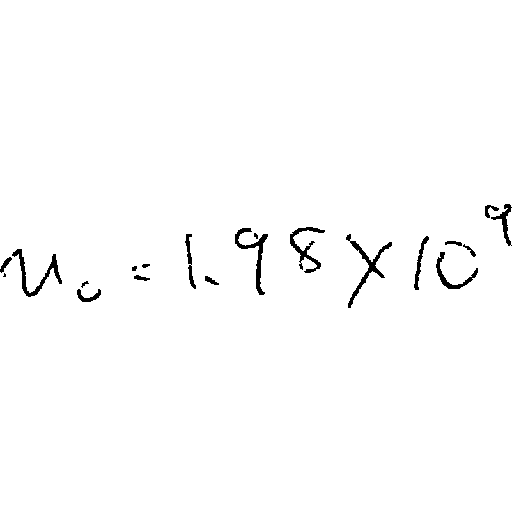 u₀ = 1.98 × 10⁹